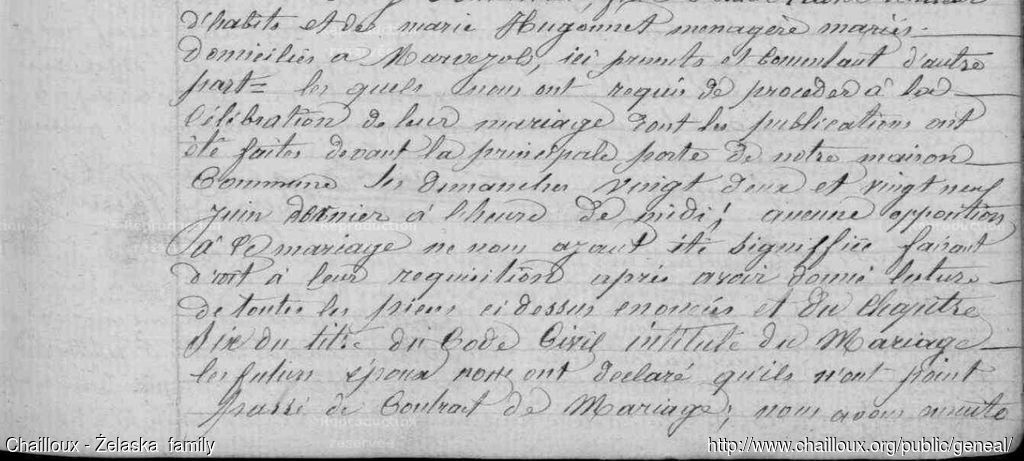 d'habits et de marie Hugonnet menagère mariés
domiciliés a Marvejols, ici presents et consentant d'autre
part= les quels nous ont requis de proceder à la
Célébration de leur mariage dont les publications ont
été faites devant la principale porte de notre maison
Commune les dimanches vingt deux et vingt neuf
juin dernier à l'heure de midi; aucune opposition
à Ce mariage ne nous ayant été signiffiée faisant
droit à leur requisition après avoir donné lecture
de toutes les pieces ci dessus enoncées et du Chapitre
Six du titre du Code Civil intitulé du Mariage
les futurs époux nous ont declaré qu'ils n'ont point
passé de Contrat de Mariage; nous avons ensuite
Chailloux - Żelaska family
http://www.chailloux.org/public/geneal/